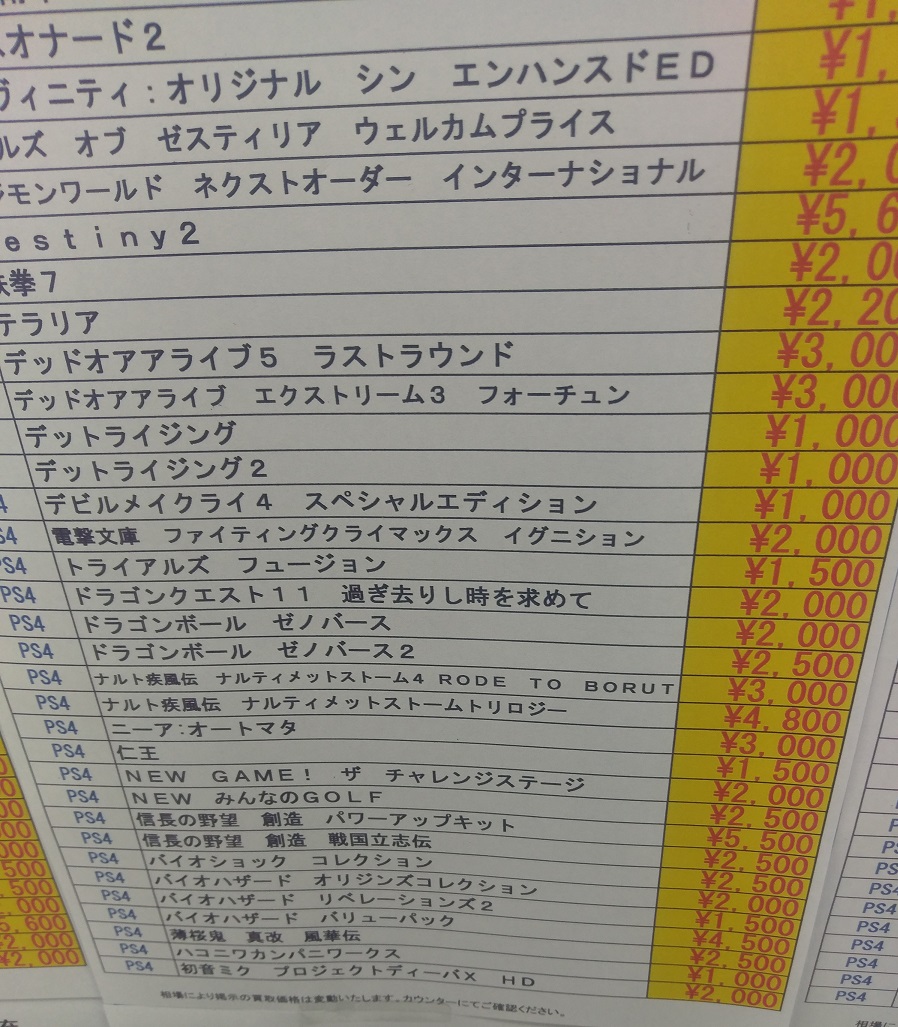 オナード2 ¥1,
ヴィニティ:オリジナル シン エンハンスドED ¥1,
ルズ オブ ゼスティリア ウェルカムプライス ¥1,
モンワールド ネクストオーダー インターナショナル ¥2,0
estiny2 ¥5,6
拳7 ¥2,00
テラリア ¥2,20
デッドオアアライブ5 ラストラウンド ¥3,00
デッドオアアライブ エクストリーム3 フォーチュン ¥3,000
デットライジング ¥1,000
デットライジング2 ¥1,000
4 デビルメイクライ4 スペシャルエディション ¥1,000
S4 電撃文庫 ファイティングクライマックス イグニション ¥2,000
PS4 トライアルズ フュージョン ¥1,500
PS4 ドラゴンクエスト11 過ぎ去りし時を求めて ¥2,000
PS4 ドラゴンボール ゼノバース ¥2,000
PS4 ドラゴンボール ゼノバース2 ¥2,500
PS4 ナルト疾風伝 ナルティメットストーム4 RODE TO BORUT ¥3,000
PS4 ナルト疾風伝 ナルティメットストームトリロジー ¥4,800
PS4 ニーア:オートマタ ¥3,000
PS4 仁王 ¥1,500
PS4 NEW GAME! ザ チャレンジステージ ¥2,000
PS4 NEW みんなのGOLF ¥2,500
PS4 信長の野望 創造 パワーアップキット ¥5,500
PS4 信長の野望 創造 戦国立志伝 ¥2,500
PS4 バイオショック コレクション ¥2,500
PS4 バイオハザード オリジンズコレクション ¥2,000
PS4 バイオハザード リベレーションズ2 ¥1,500
PS4 バイオハザード バリューパック ¥4,500
PS4 薄桜鬼 真改 風華伝 ¥2,500
PS4 ハコニワカンパニワークス ¥1,000
PS4 初音ミク プロジェクトディーバX HD ¥2,000
相場により掲示の買取価格は変動いたします。カウンターにてご確認ください。
000
500
,500
,000
5,600
¥2,000
¥2,000
PS4
PS4
PS4
PS4
PS4
PS4
PS4
相場に